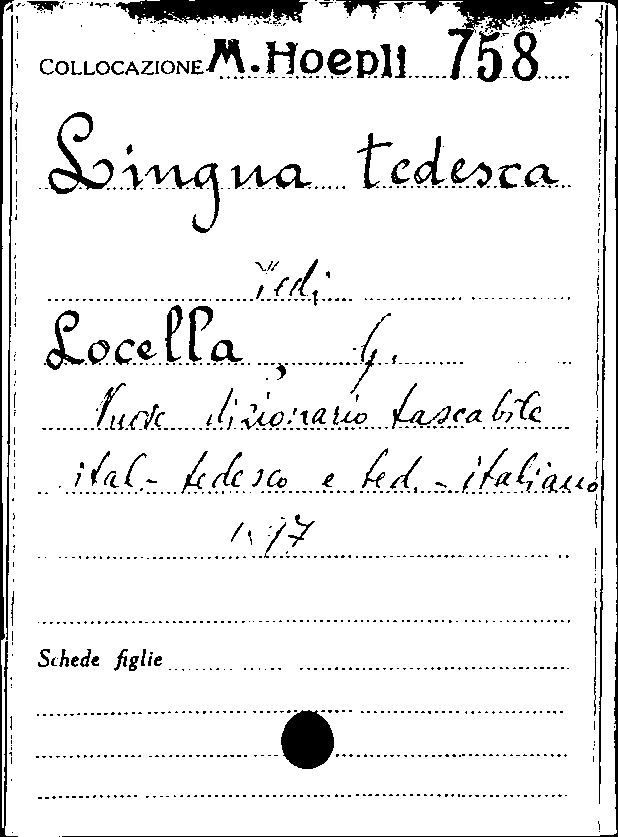 COLLOCAZIONE M. Hoepli 758
Lingua tedesca
Vedi
Locella, G.
Nuovo dizionario tascabile
ital.- tedesco e ted. - italiano
Schede figlie